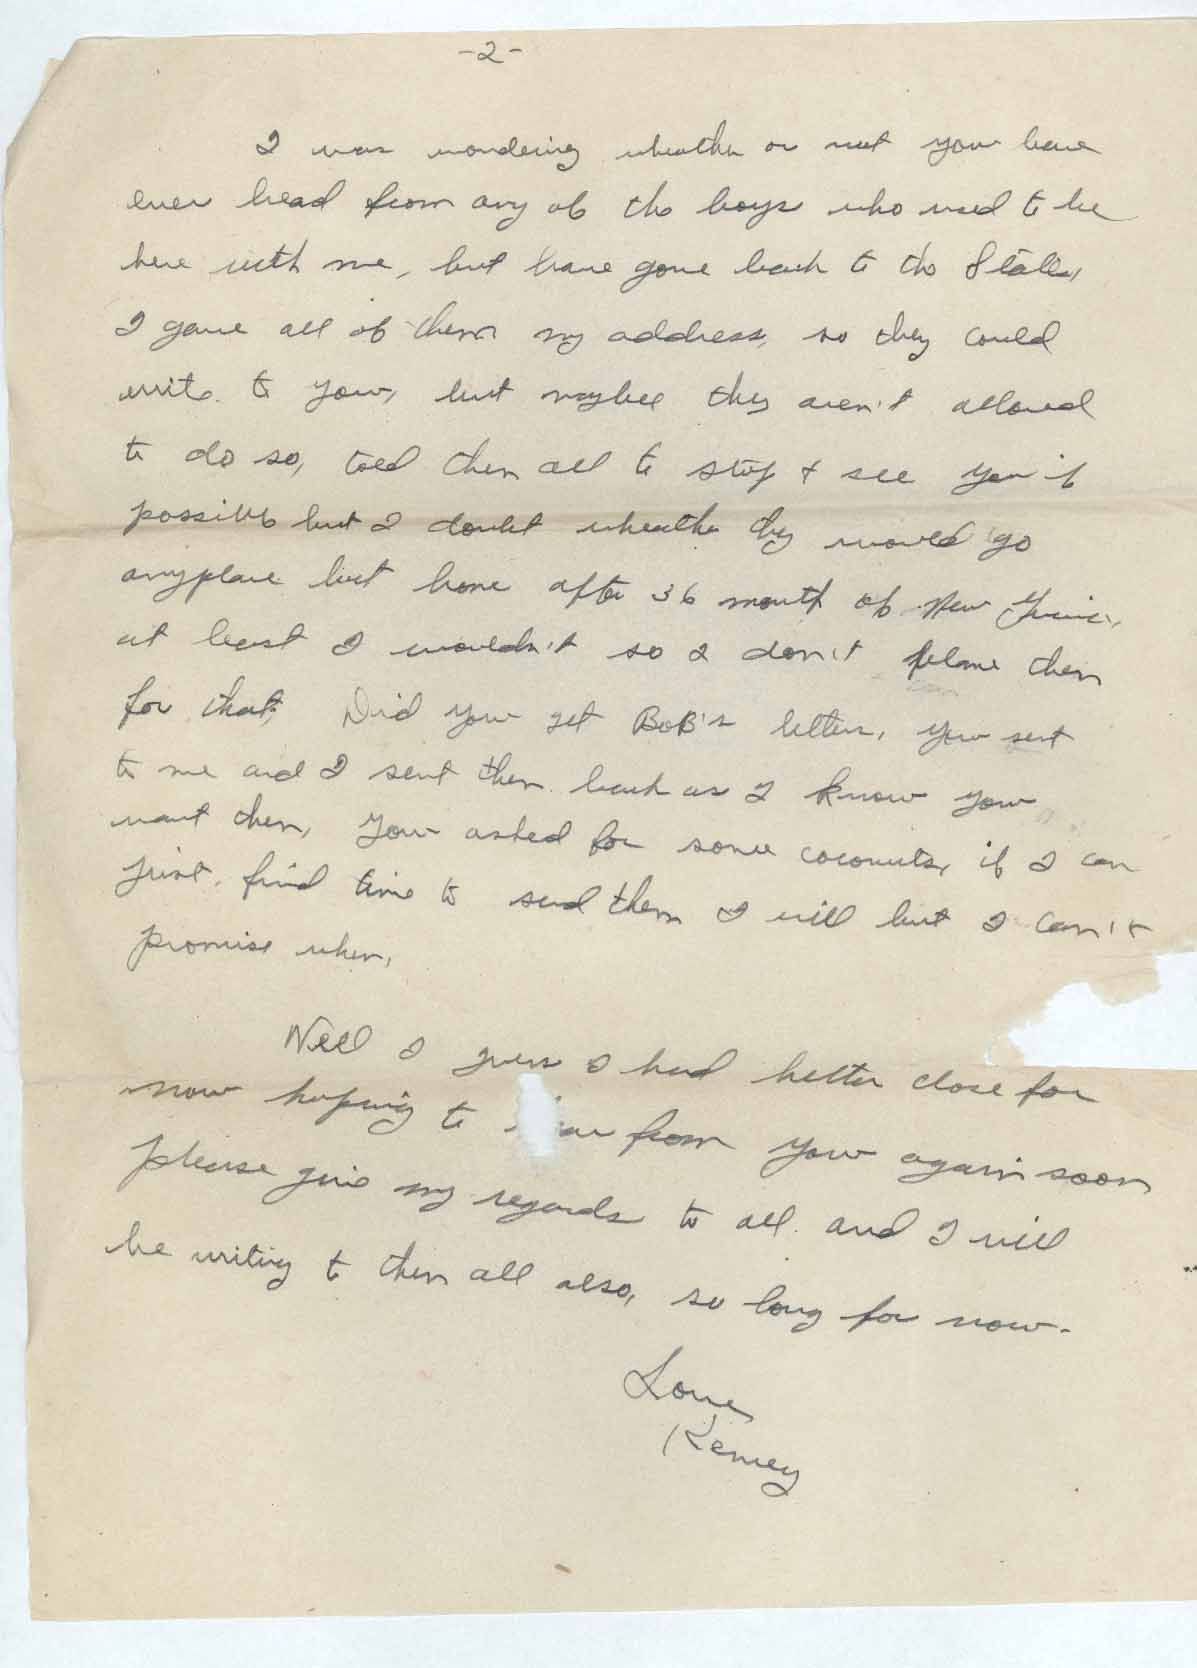 -2-
I was wondering wheather or not you have
ever head from any of the boys who used to be
here with me, but have gone back to the States,
I gave all of them my address, so they could
write to you, but maybee they aren't allowed
to do so, told them all to stop & see you if
possible but I doubt wheather they would go
anyplace but home after 36 month of New Guinea,
at least I wouldn't so I don't blame them
for that. Did you get BoB's letters, you sent
to me and I sent them back as I know you
want them, you asked for some coconuts, if I can
just find time to send them I will but I can't
promise when,
Well I guess I had better close for
now hoping to from you again soon
please give my regards to all and I will
be writing to them all also, so long for now.
Love